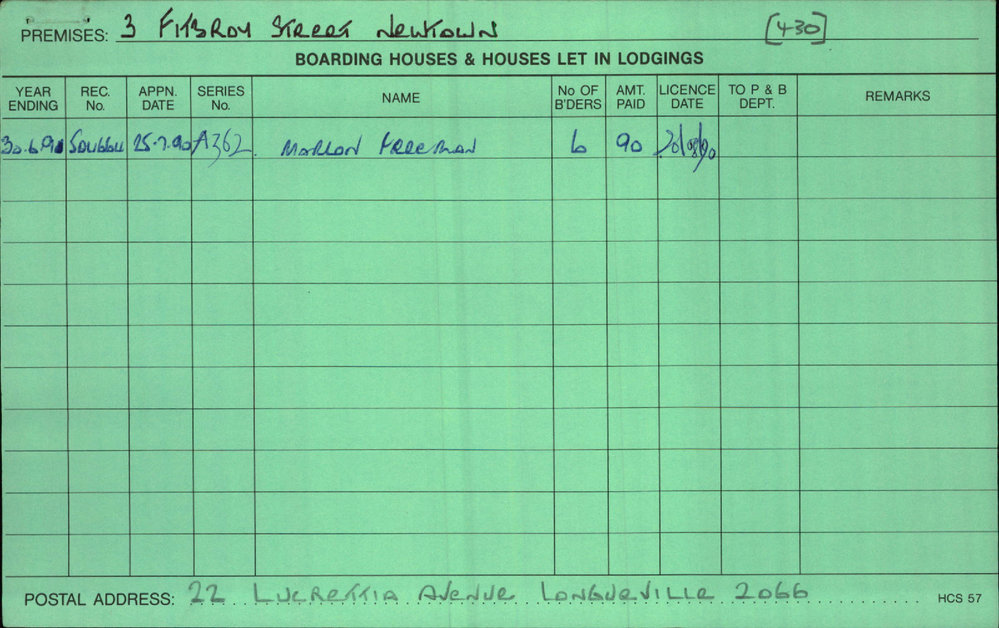 PREMISES: 3 FITZROY STREET NEWTOWN [430]
BOARDING HOUSES & HOUSES LET IN LODGINGS
YEAR ENDING REC. No. APPN. DATE SERIES No. NAME No OF B'DERS AMT. PAID LICENCE DATE TO P & B DEPT. REMARKS
25.7.90 A362 MARLON FREEMAN 6 90
POSTAL ADDRESS: 22 LUCRETTIA AVENUE LONGUEVILLE 2066 HCS 57